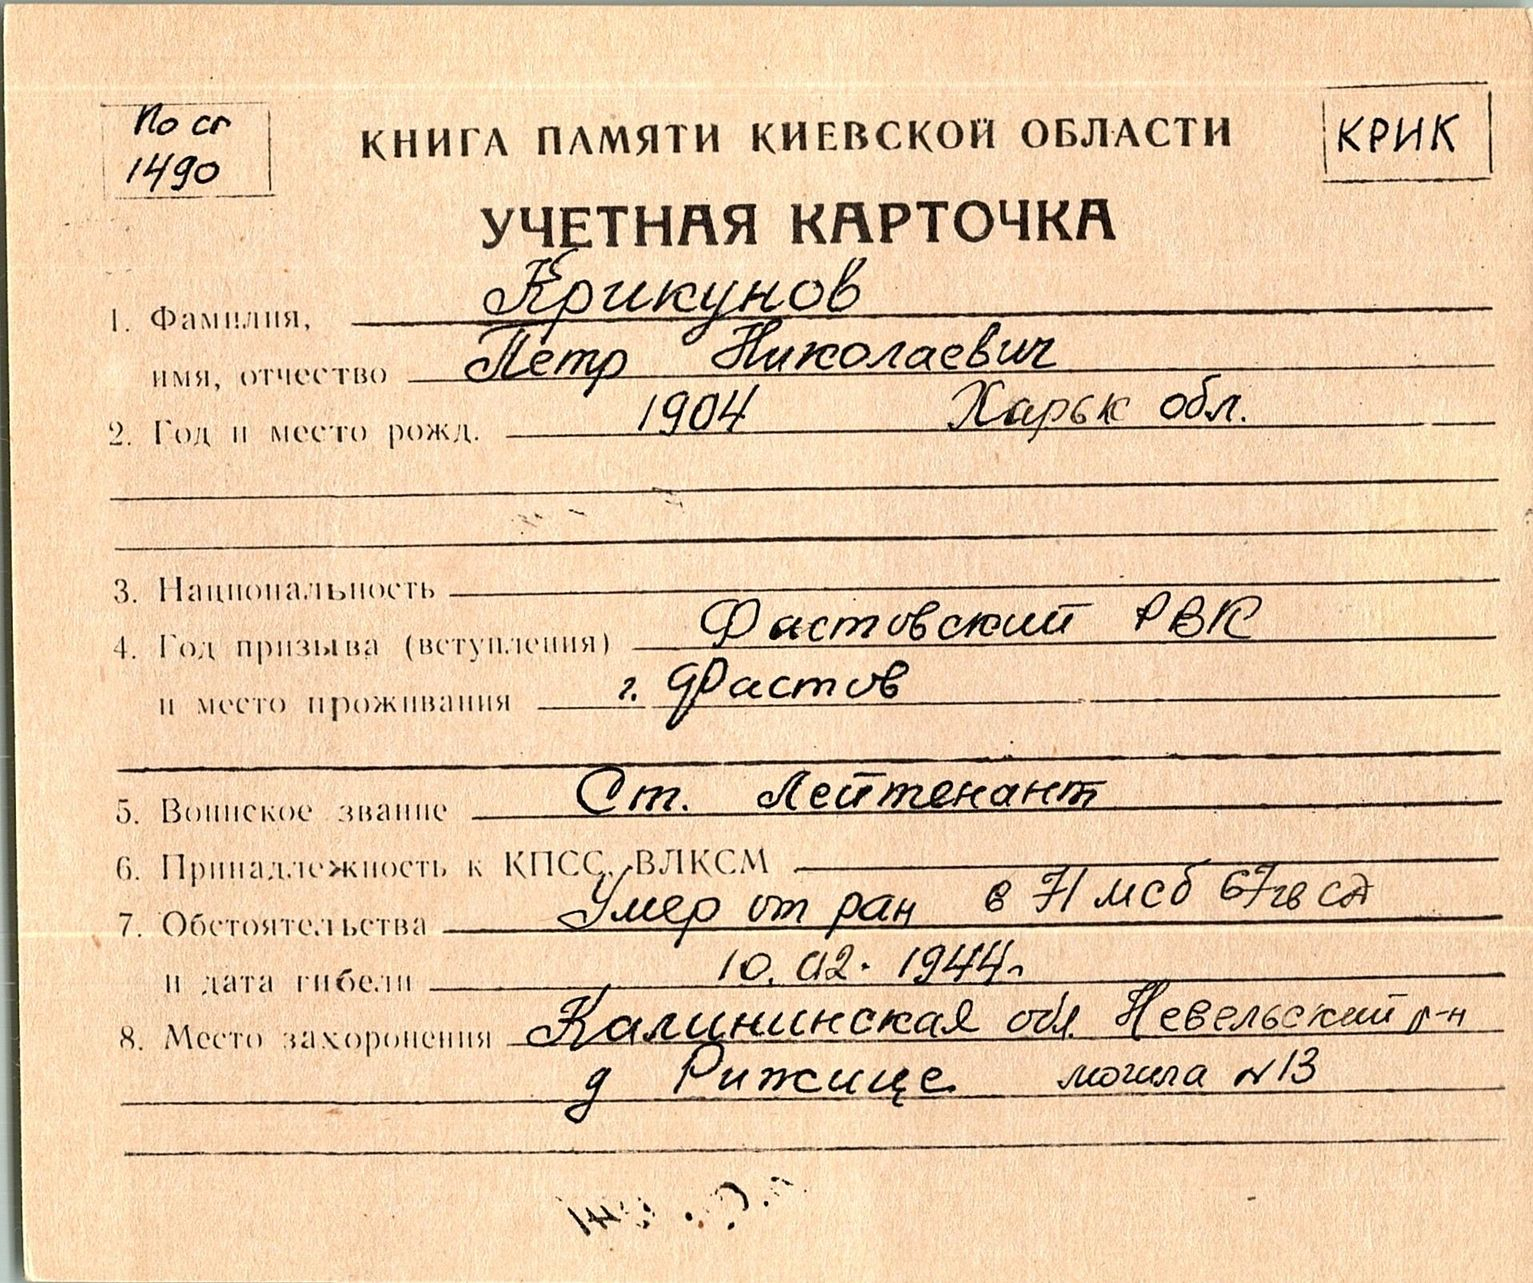 По сп
1490
КНИГА ПАМЯТИ КИЕВСКОЙ ОБЛАСТИ
КРИК
УЧЕТНАЯ КАРТОЧКА
1. Фамилия, Крикунов
имя, отчество Петр Николаевич
2. Год и место рожд. 1904 Харьк обл.
3. Национальность
4. Год призыва (вступления) Фастовский РВК
и место проживания г. Фастов
5. Воинское звание Ст. Лейтенант
6. Принадлежность к КПСС, ВЛКСМ
7. Обстоятельства Умер от ран в 71 мсб 67 гв сд
и дата гибели 10.02.1944г.
8. Место захоронения Калининская обл. Невельский р-н
д Рижице могила N13